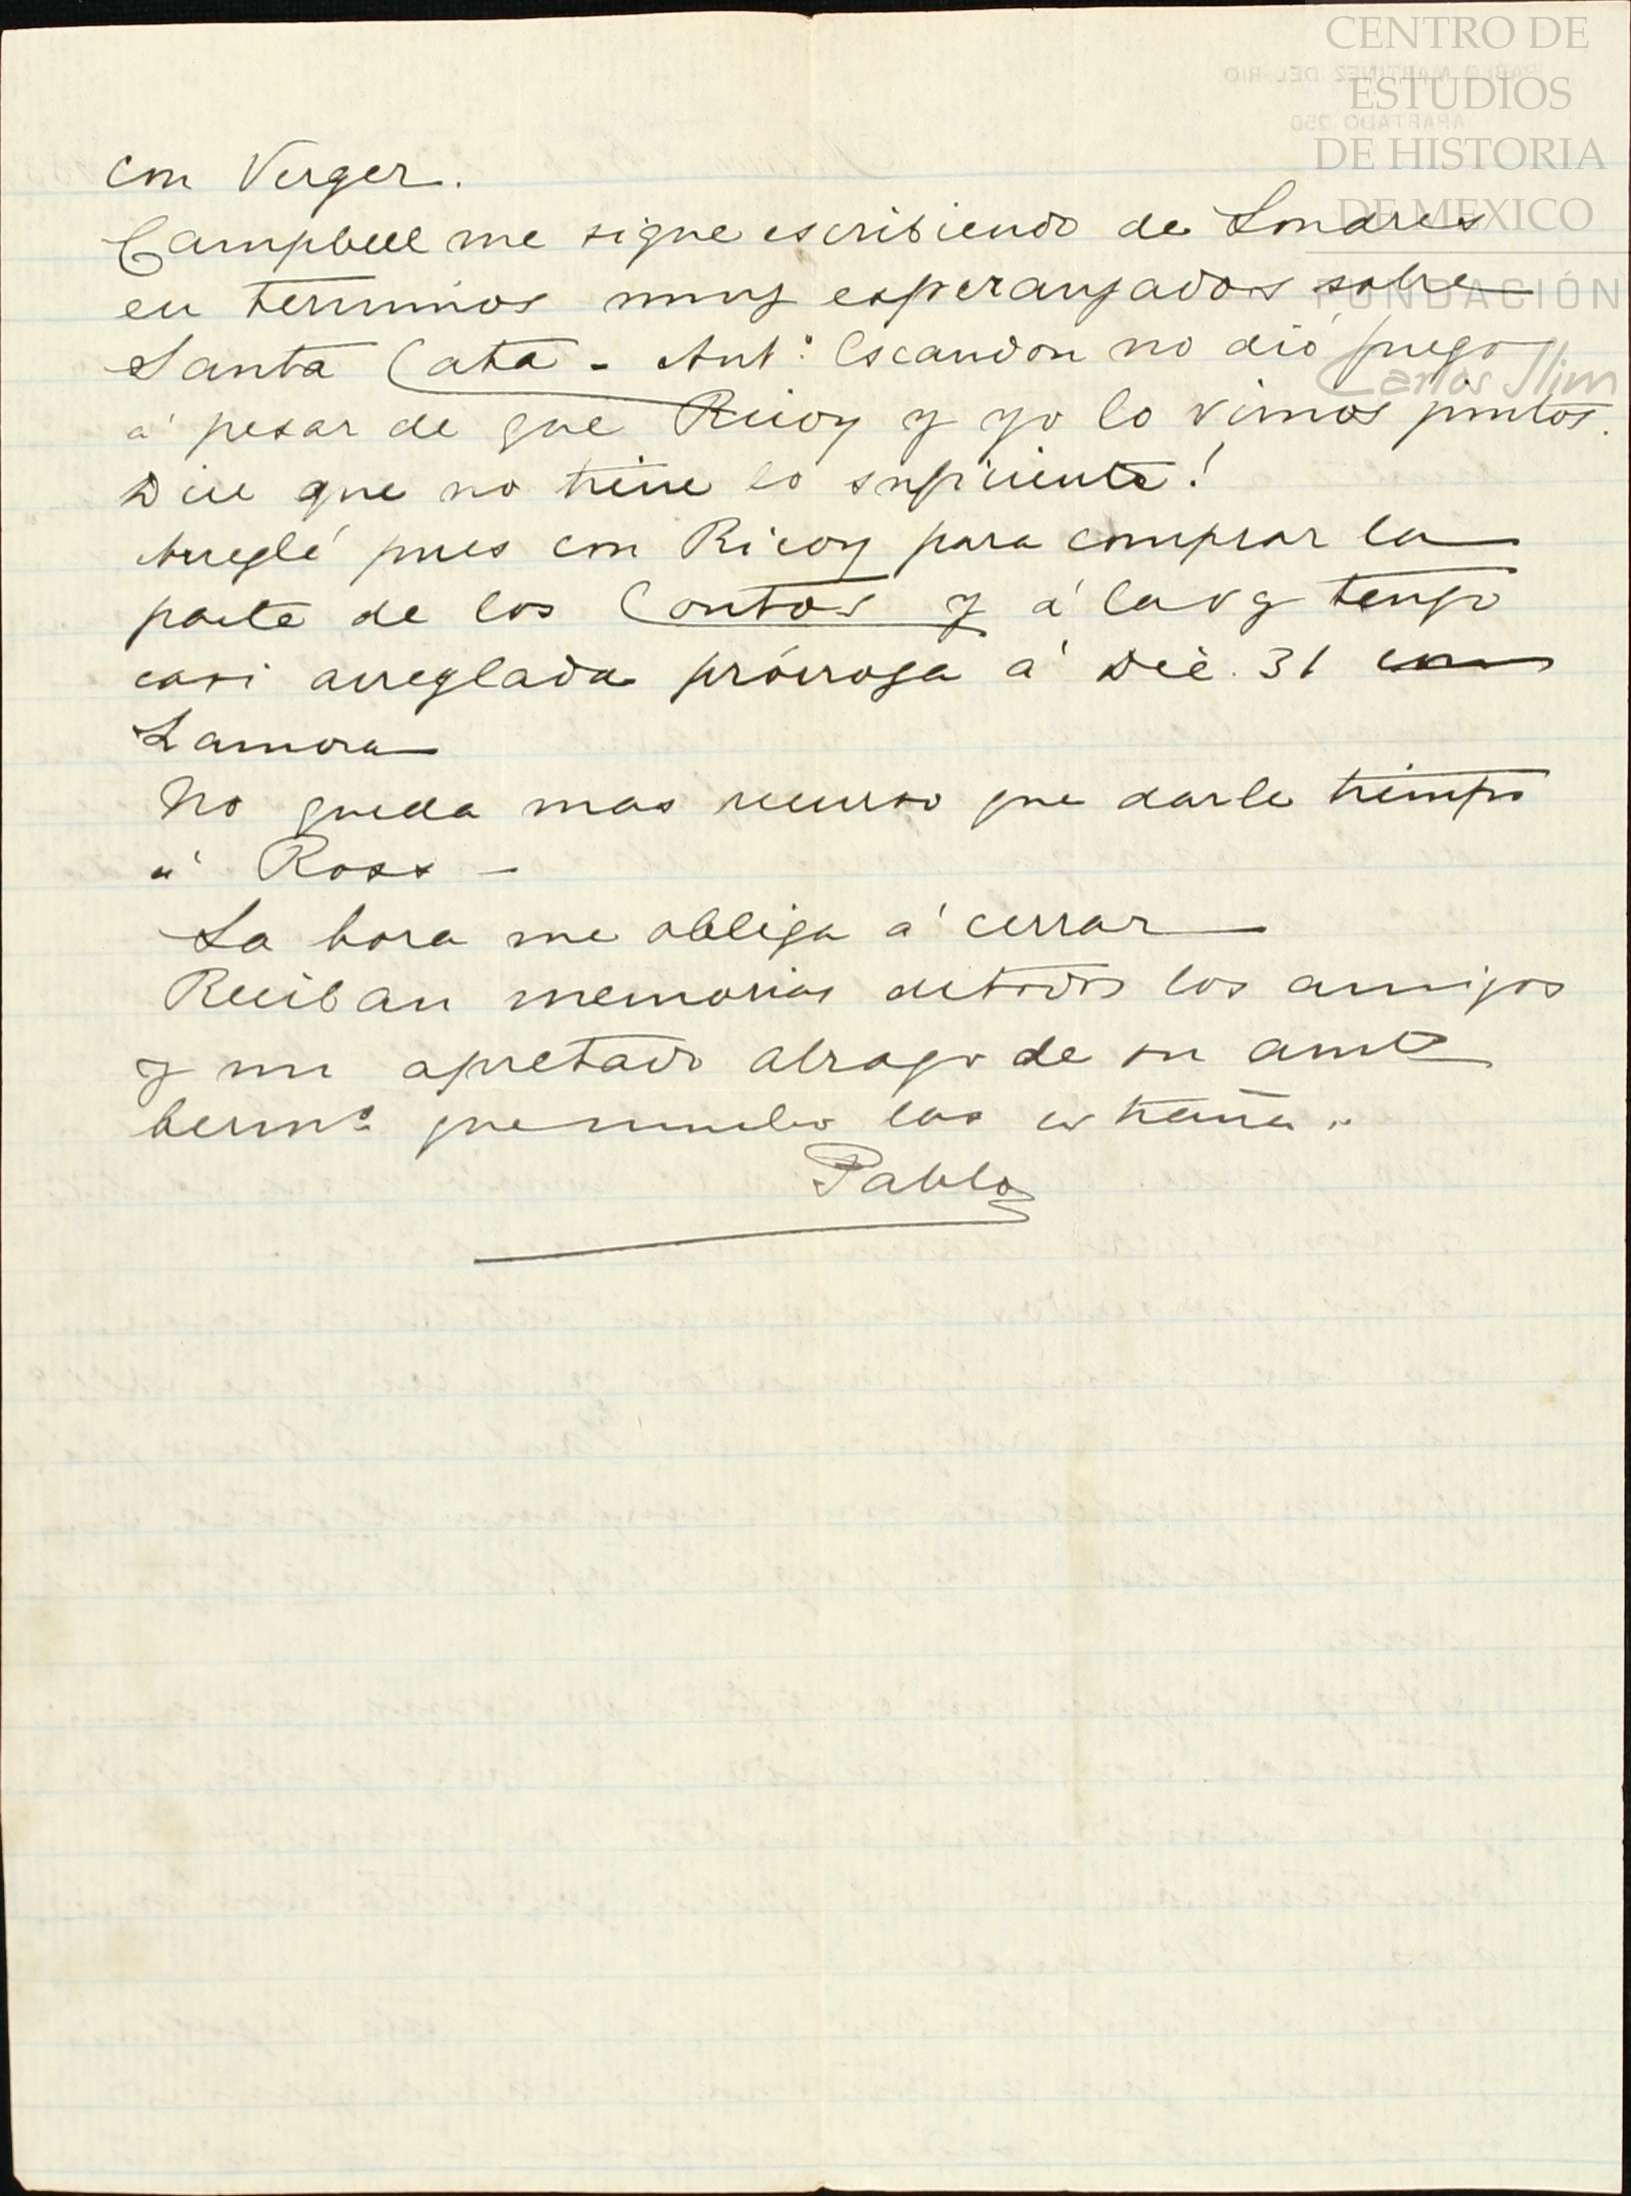 CENTRO DE
ESTUDIOS
DE HISTORIA
DE MEXICO
FUNDACIÓN
Carlos Slim
PABLO MARTINEZ DEL RIO
APARTADO 250
con Verger.
Campbell me sigue escribiendo de Londres
en terminos muy esperanzados sobre
Santa Cata - Ant.º Escandon no dió fuego
á pesar de que Ricoy y yo lo vimos juntos.
Dice que no tiene lo suficiente!
Arreglé pues con Ricoy para comprar la
parte de los Contos y á la vz tengo
casi arreglada prórroga á Dic. 31 con
Zamora
No queda mas recurso que darle tiempo
á Ross -
La hora me obliga á cerrar
Reciban memorias de todos los amigos
y un apretado abrazo de su amte
hermº que mucho los extraña.
Pablo